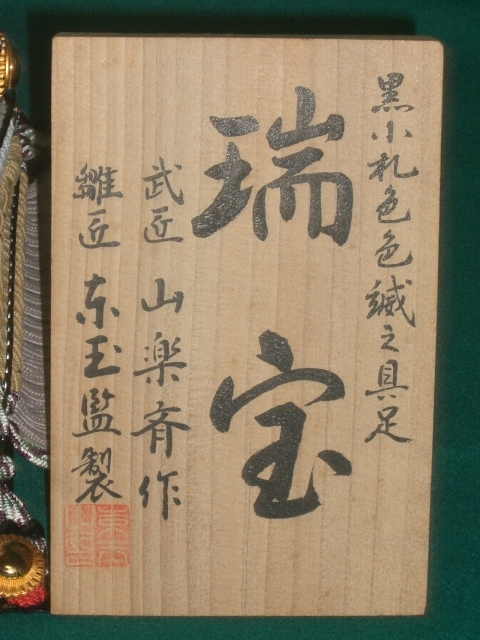 黒小札色色縅之具足
瑞宝
武匠 山楽斉作
雛匠 東玉監製